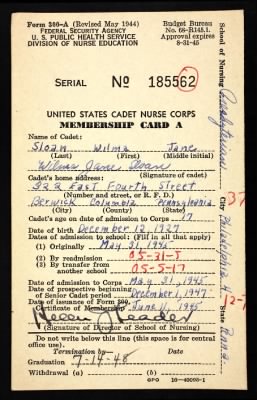 Form 300-A (Revised May 1944)
FEDERAL SECURITY AGENCY
U. S. PUBLIC HEALTH SERVICE
DIVISION OF NURSE EDUCATION
Budget Bureau
No. 68-R145.1.
Approval expires
8-31-45
SERIAL No 185562
UNITED STATES CADET NURSE CORPS
MEMBERSHIP CARD A
Name of Cadet:
Sloan Wilma Jane
(Last) (First) (Middle initial)
Wilma Jane Sloan
Cadet's home address: (Signature of cadet)
322 East Fourth Street
(Number and street, or R. F. D.)
Berwick Columbia Pennsylvania
(City) (County) (State)
Cadet's age on date of admission to Corps 17
Date of birth December 12, 1927
Dates of admission to school: (Fill in all that apply)
(1) Originally May 31, 1945
(2) By readmission 05-31-5
(3) By transfer from
another school 05-5-17
Date of admission to Corps May 31, 1945
Date of prospective beginning
of Senior Cadet period December 1, 1947
Date of issuance of Form 300,
Certificate of Membership June 11, 1945
Helen Leader
(Signature of Director of School of Nursing)
Do not write below this line (this space is for central
office use).
Termination by Date
Graduation 7-14-48
Withdrawal (a) (b)
GPO 16-40098-1
School of Nursing Presbyterian
City Philadelphia
State Penna.
37
12-7